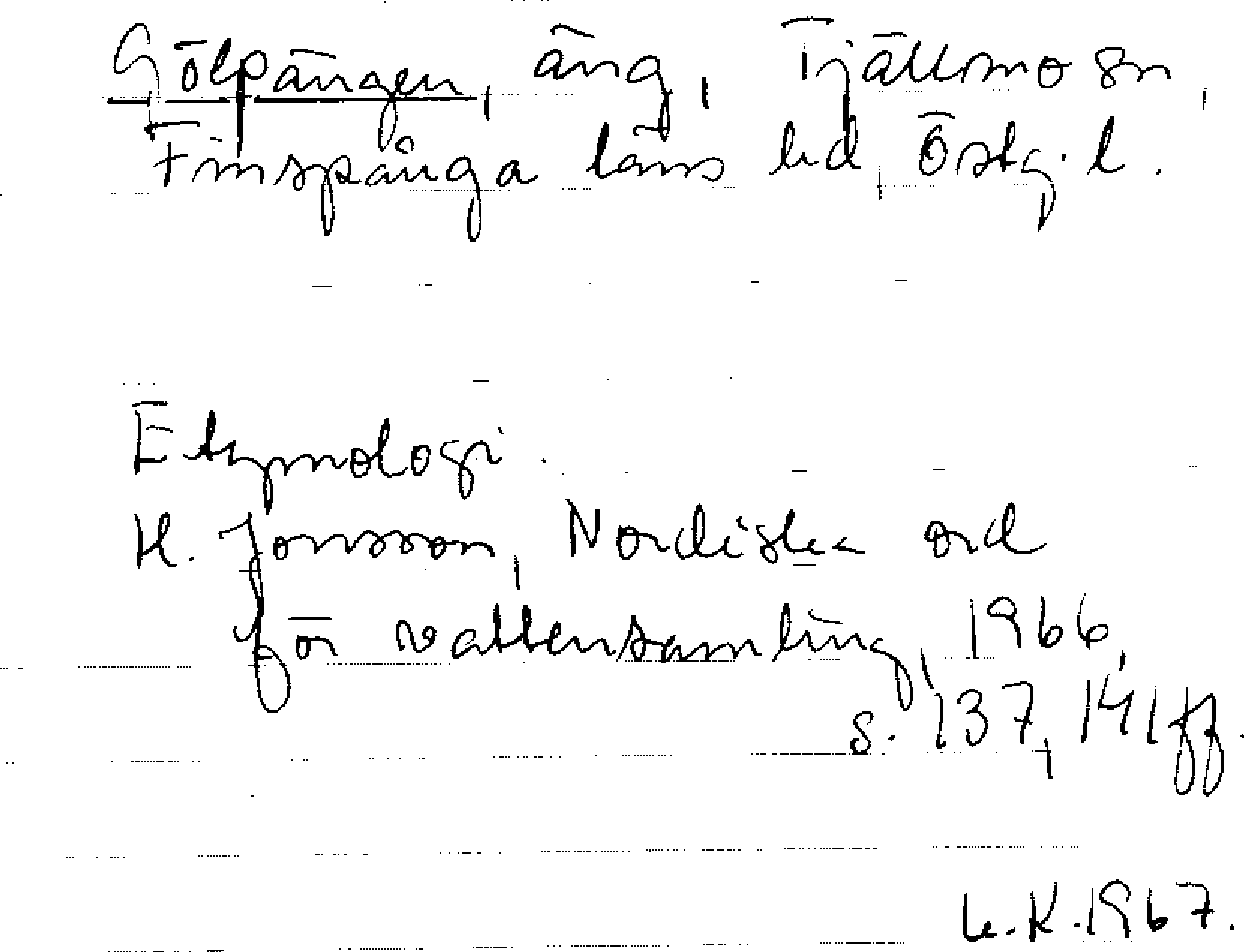 Gölpängen, äng, Tjällmo sn,
Finspånga läns hd, Östg.l.
Etymologi.
H. Jonsson, Nordiska ord
för vattensamling, 1966,
s. 137, 141ff.
L.K. 1967.